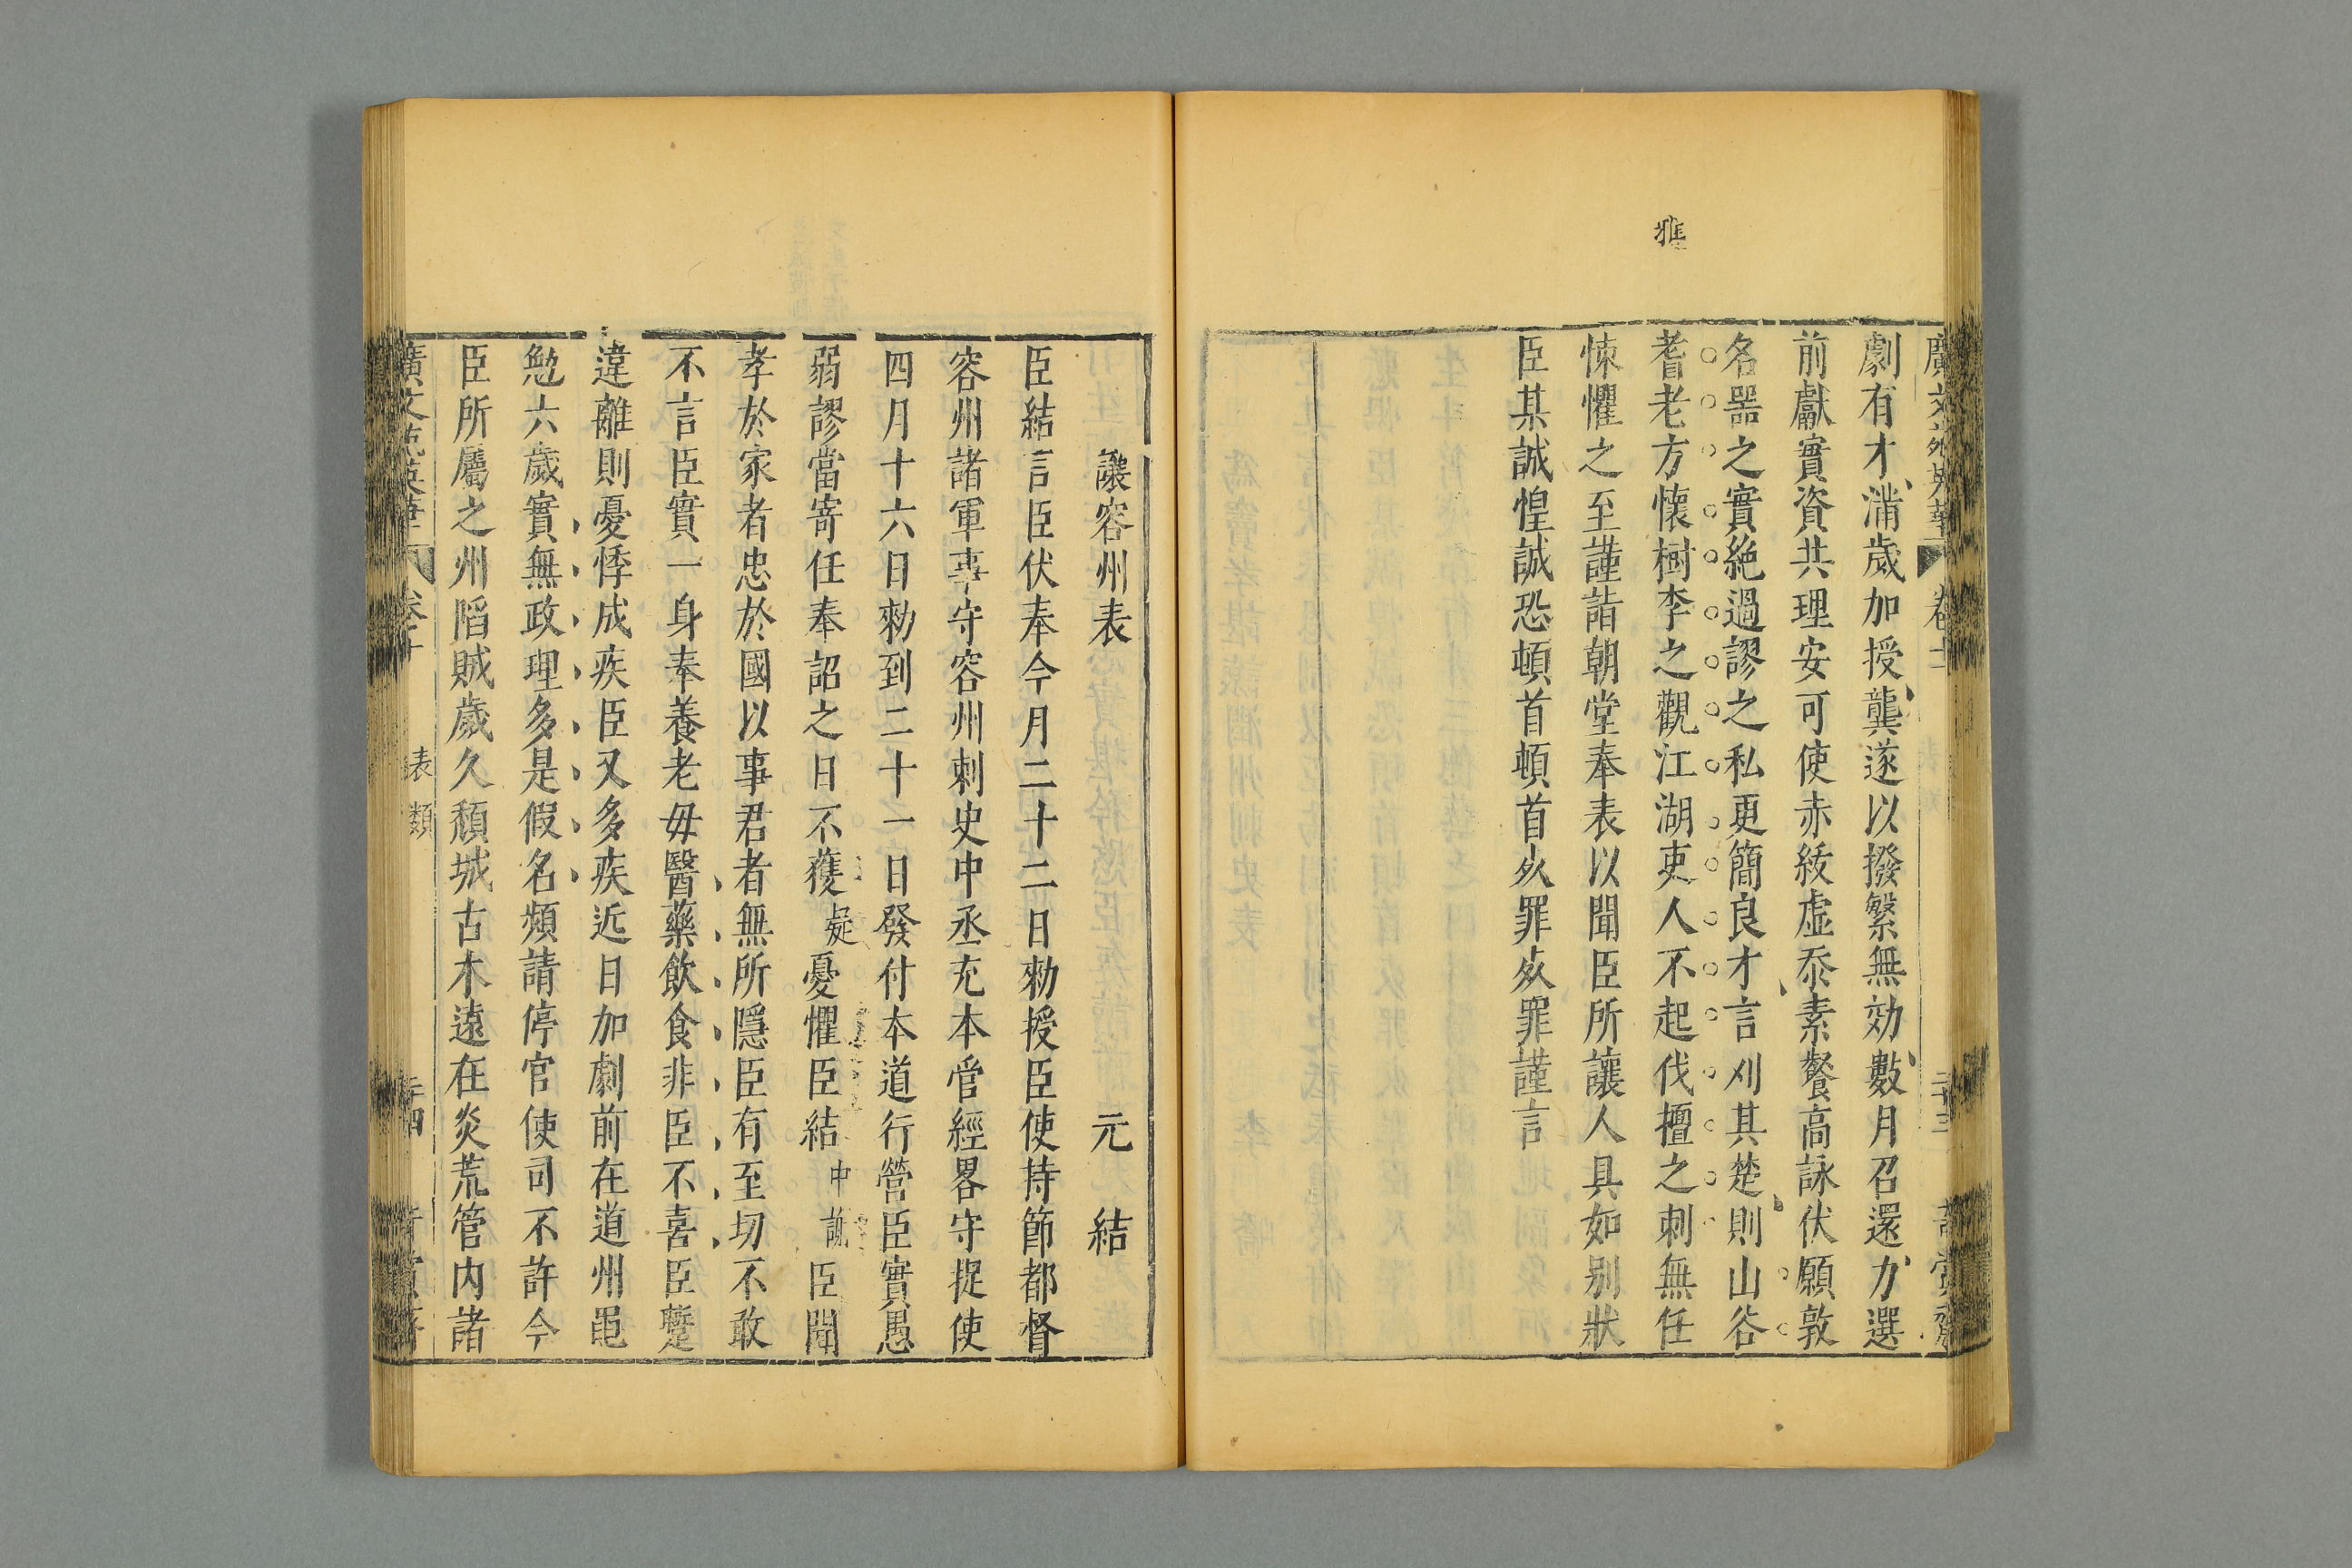 雅
劇有才滿歲加授龔遂以撥繁無効數月召還力選
前獻實資共理安可使赤紱虛忝素餐高詠伏願敦
名器之實絶過謬之私更簡良才言刈其楚則山谷
耆老方懷樹李之觀江湖吏人不起伐檀之刺無任
悚懼之至謹詣朝堂奉表以聞臣所讓人具如别狀
臣某誠惶誠恐頓首頓首死罪死罪謹言
讓容州表 元結
臣結言臣伏奉今月二十二日勑授臣使持節都督
容州諸軍事守容州刺史中丞充本管經畧守捉使
四月十六日勑到二十一日發付本道行營臣實愚
弱謬當寄任奉詔之日不獲疑憂懼臣結中謝臣聞
孝於家者忠於國以事君者無所隱臣有至切不敢
不言臣實一身奉養老毋醫藥飲食非臣不喜臣蹔
違離則憂悸成疾臣又多疾近日加劇前在道州黽
勉六歲實無政理多是假名頻請停官使司不許今
臣所屬之州陷賊歲久頹城古木遠在炎荒管内諸
廣文苑英華 卷十 表類